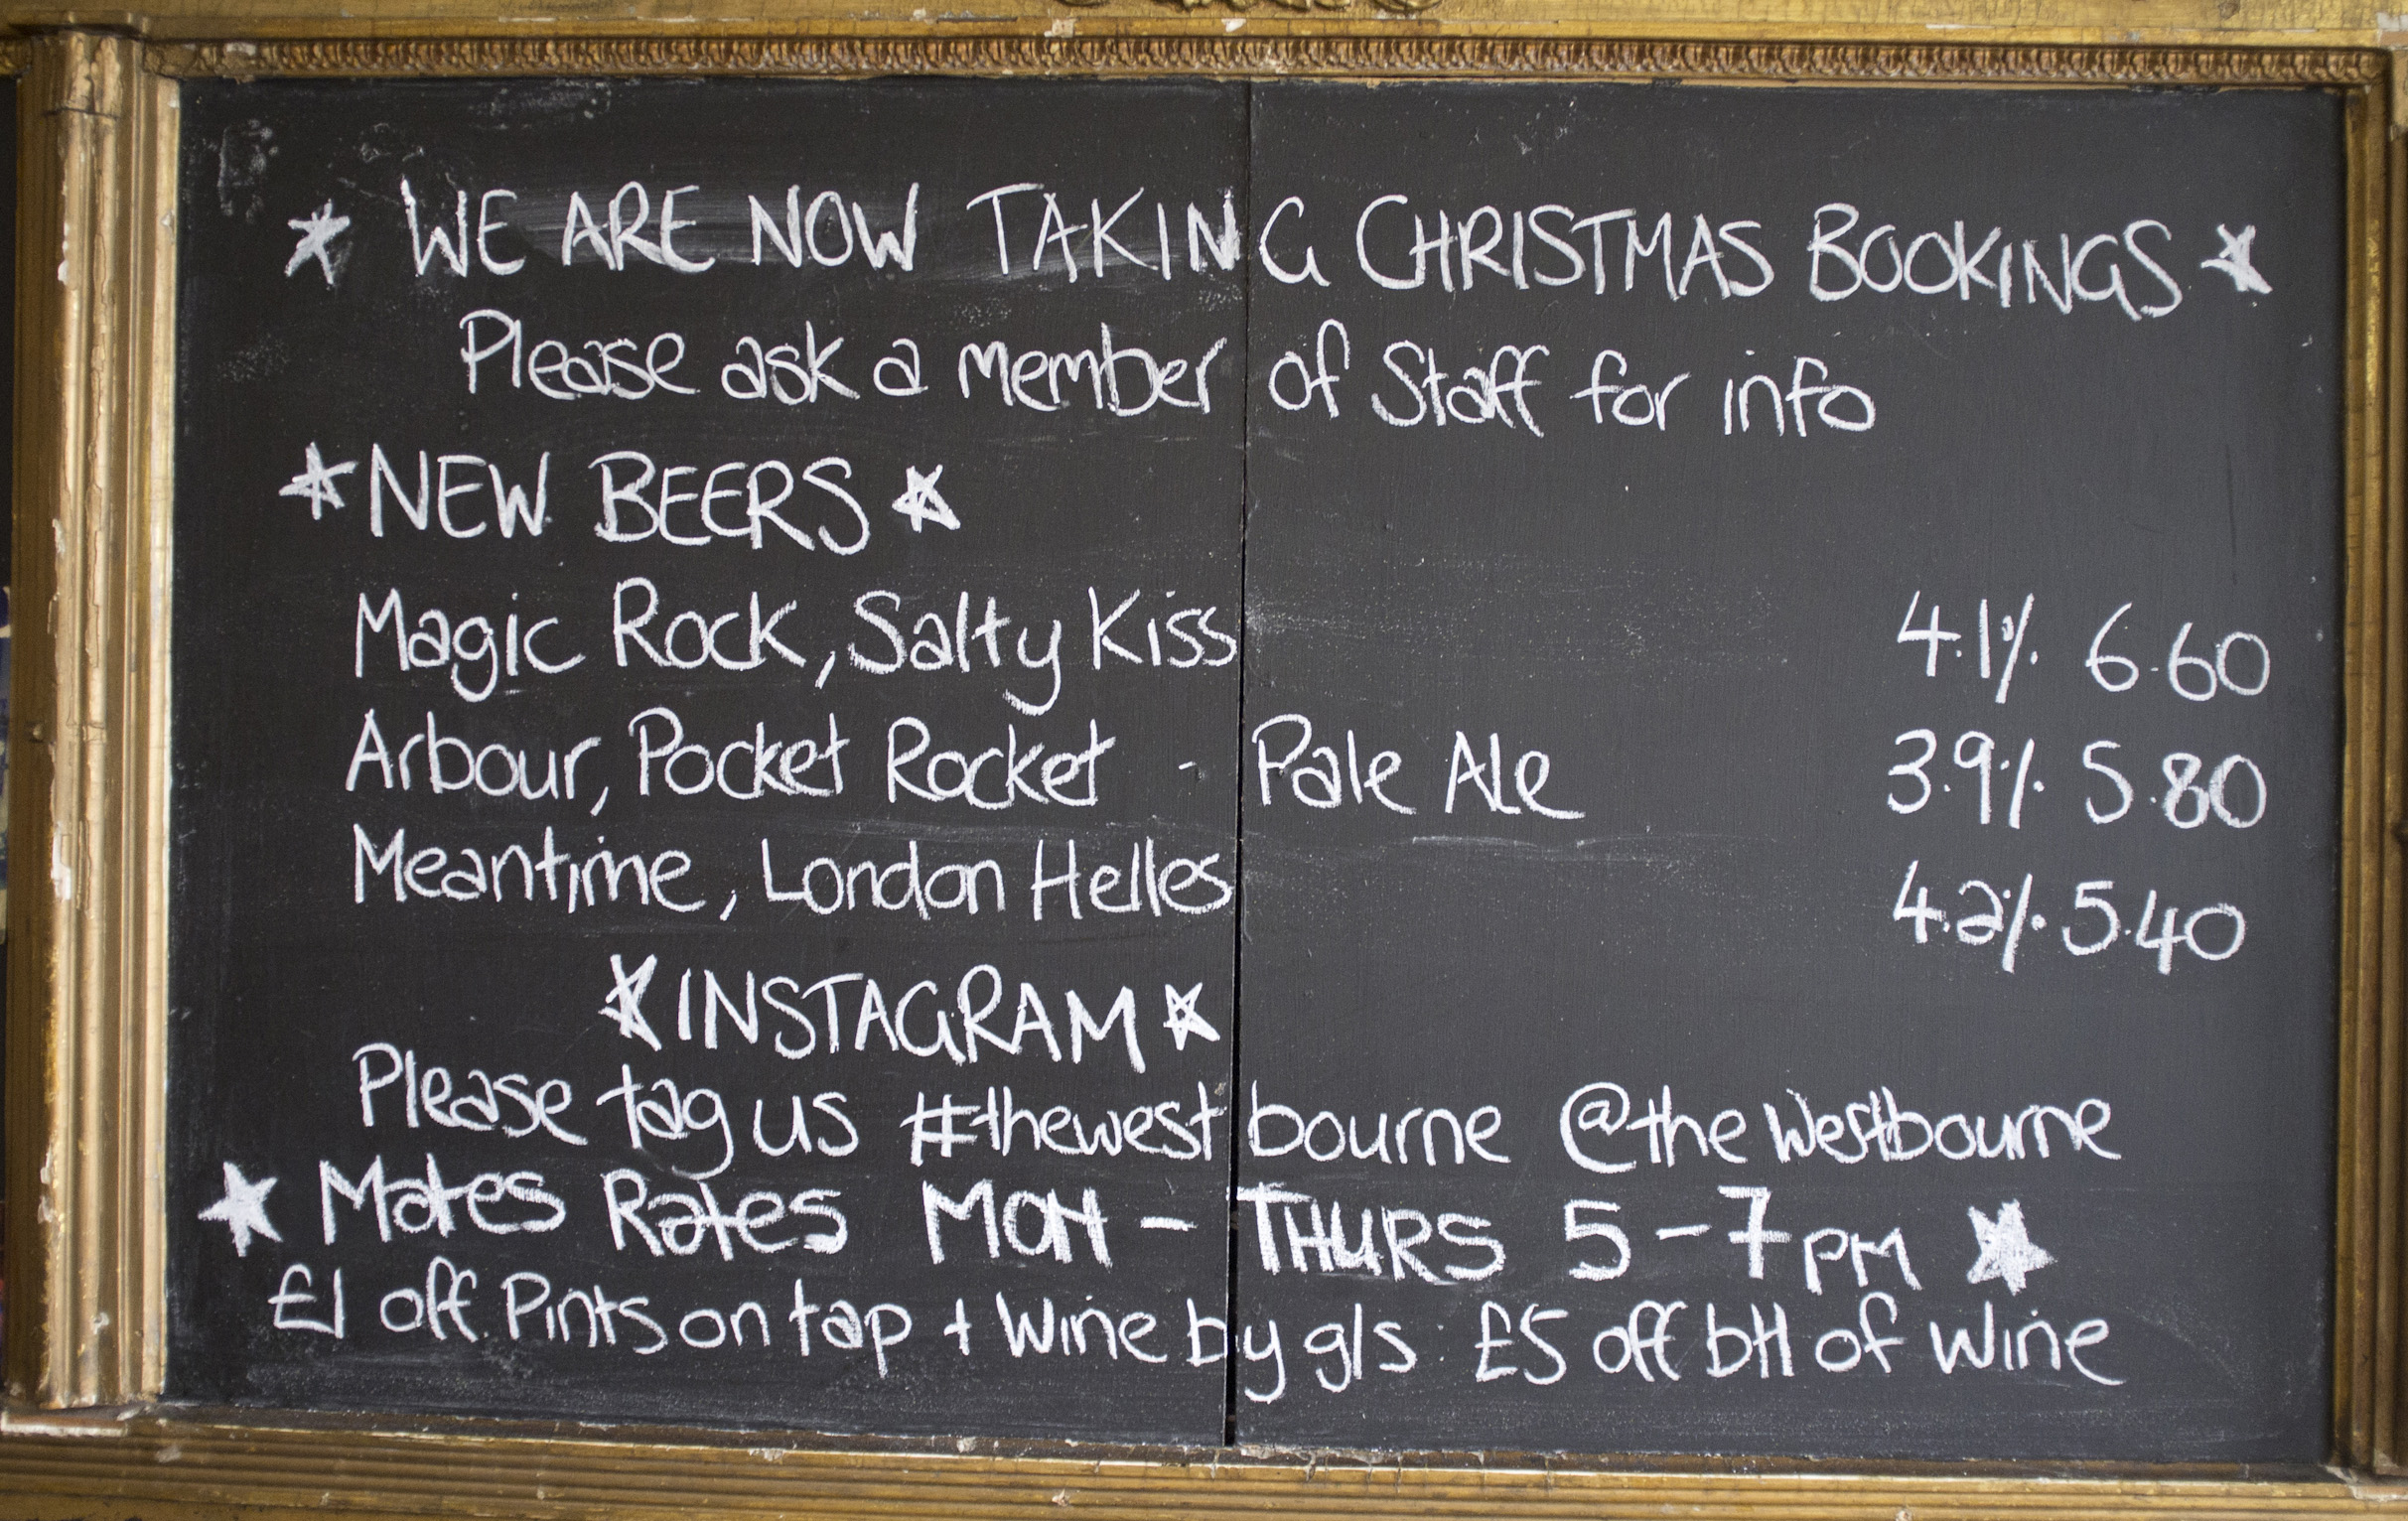 ★ WE ARE NOW TAKING CHRISTMAS BOOKINGS ★
Please ask a member of Staff for info
★ NEW BEERS ★
Magic Rock, Salty Kiss 4.1% 6.60
Arbour, Pocket Rocket - Pale Ale 3.9% 5.80
Meantime, London Helles 4.2% 5.40
★ INSTAGRAM ★
Please tag us #thewestbourne @the Westbourne
★ Mates Rates MON - THURS 5-7PM ★
£1 off Pints on tap + Wine by gls. £5 off btl of Wine